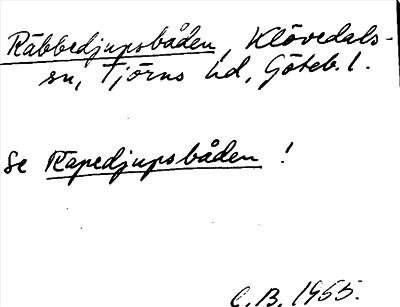 Räbbedjupsbåden, Klövedals-
sn, Tjörns hd, Göteb. l.
Se Rapedjupsbåden !
C.B. 1955.